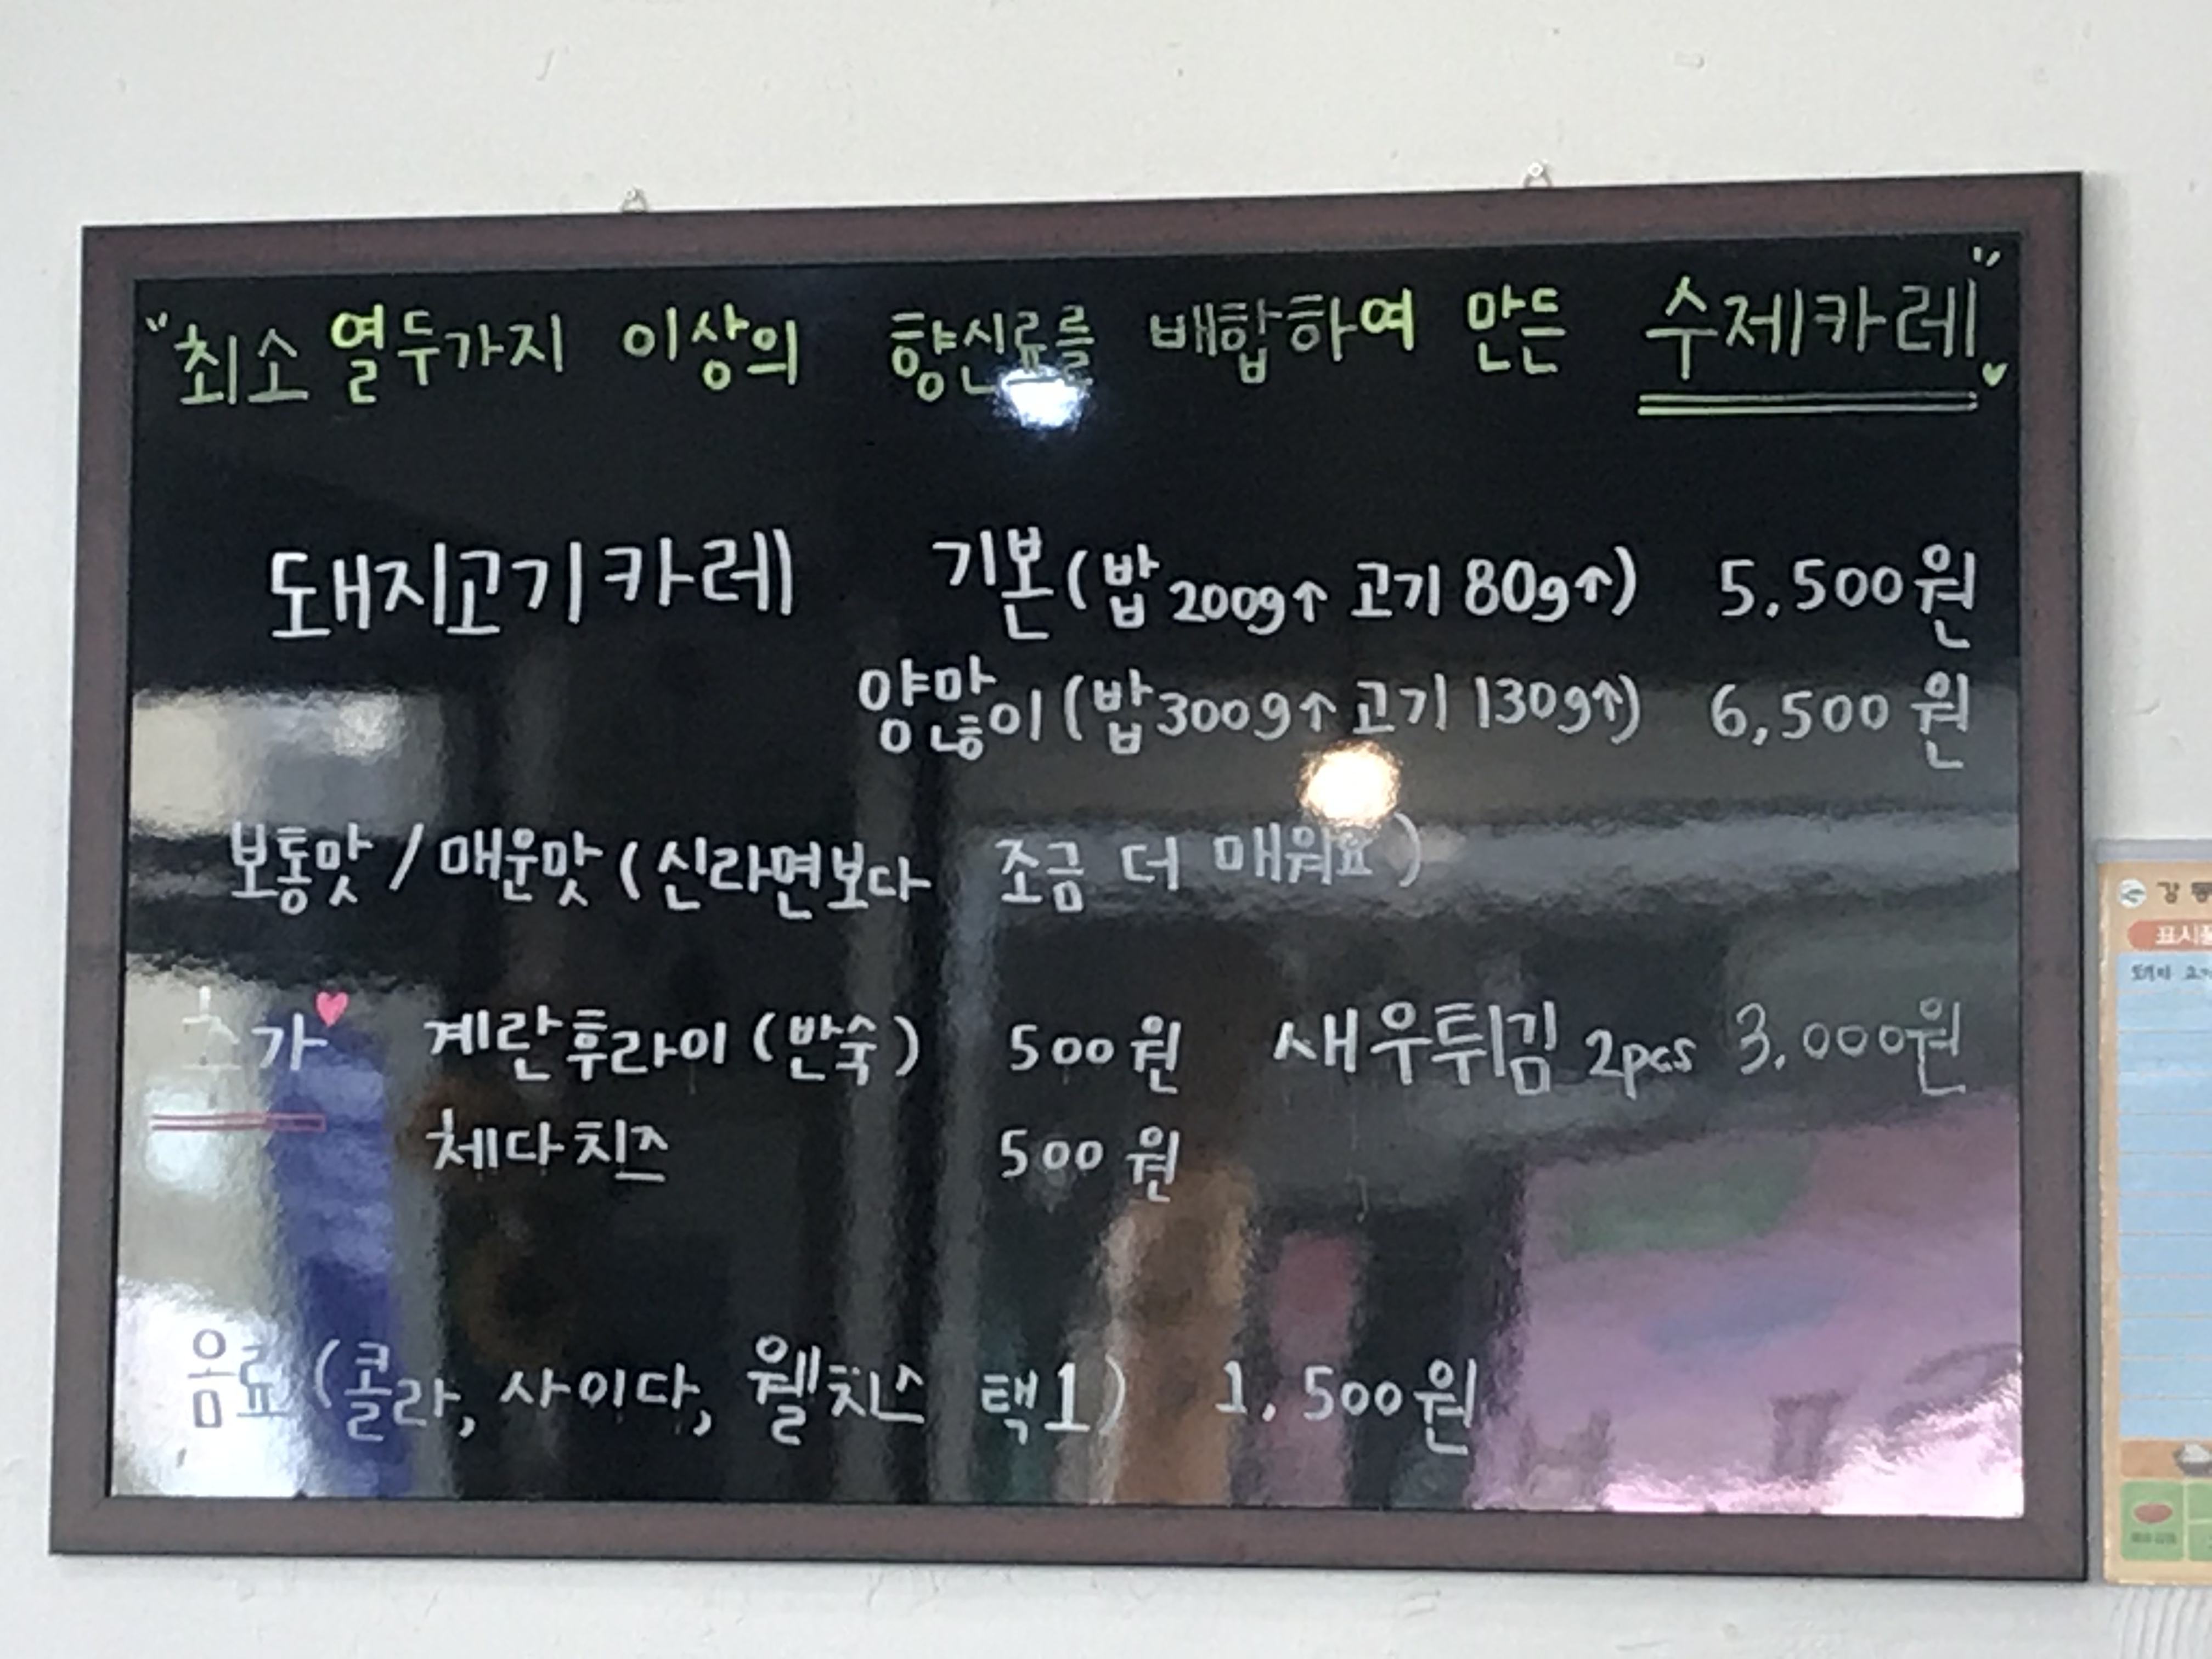 "최소 열두가지 이상의 향신료를 배합하여 만든 수제카레"
돼지고기카레 기본(밥 200g↑ 고기 80g↑) 5,500원
양많이(밥 300g↑ 고기 130g↑) 6,500원
보통맛 / 매운맛(신라면보다 조금 더 매워요)
추가 계란후라이(반숙) 500원 새우튀김 2pcs 3,000원
체다치즈 500원
음료(콜라, 사이다, 웰치스 택1) 1,500원
강동
표시